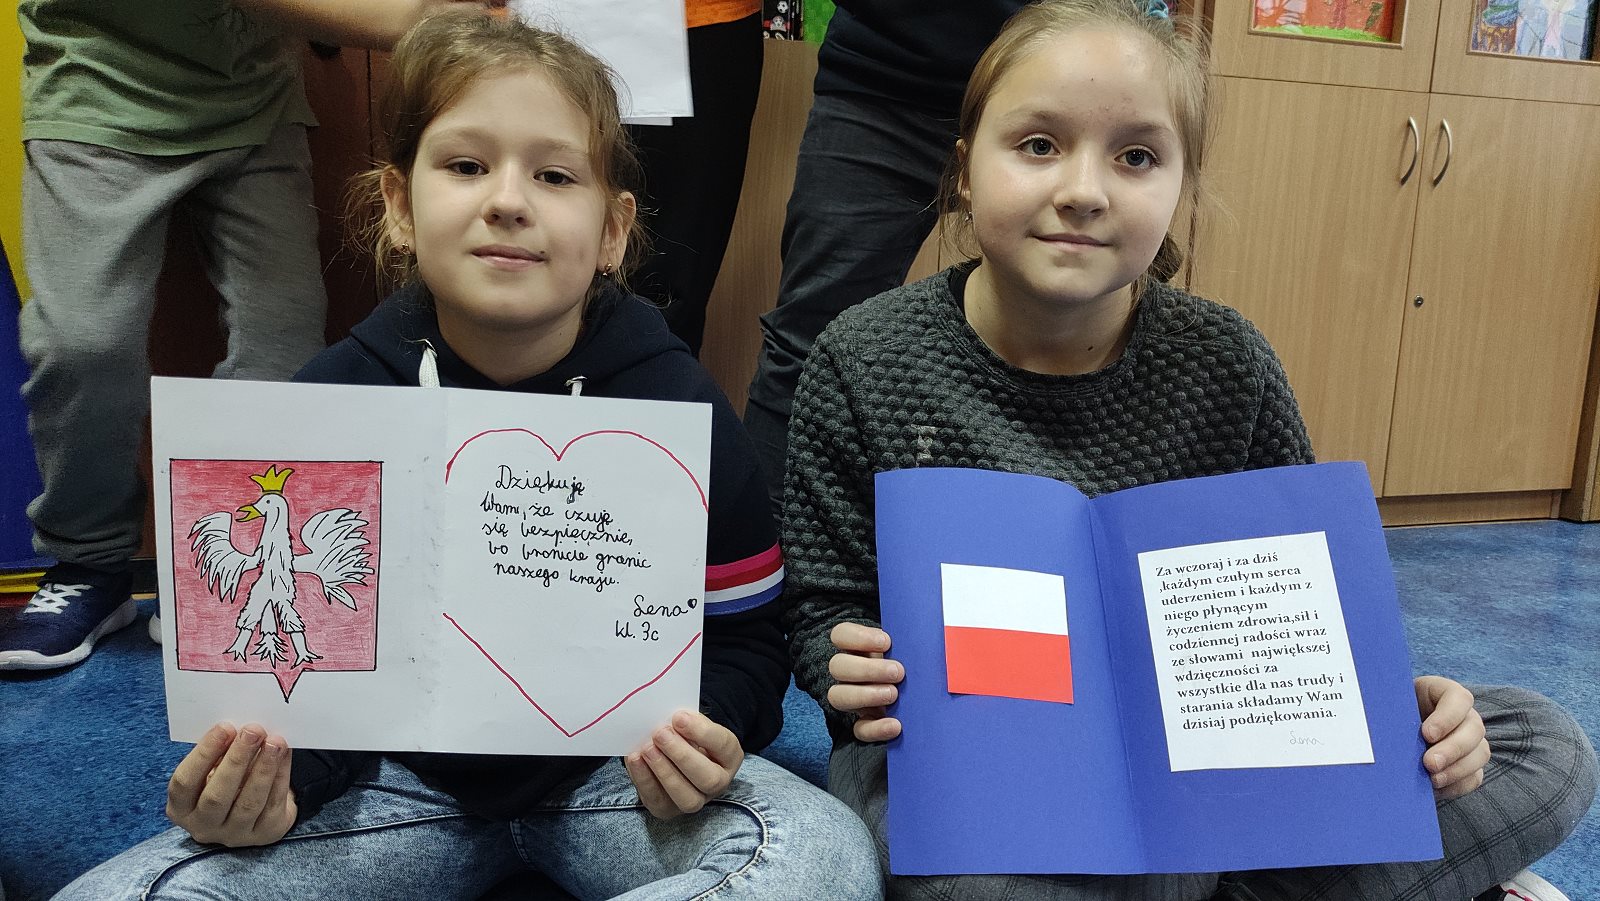 Dziękuję
Wam, że czuję
się bezpiecznie,
bo bronicie granic
naszego kraju.
Lena
kl. 3c
Za wczoraj i za dziś
,każdym czułym serca
uderzeniem i każdym z
niego płynącym
życzeniem zdrowia,sił i
codziennej radości wraz
ze słowami największej
wdzięczności za
wszystkie dla nas trudy i
starania składamy Wam
dzisiaj podziękowania.
Lena